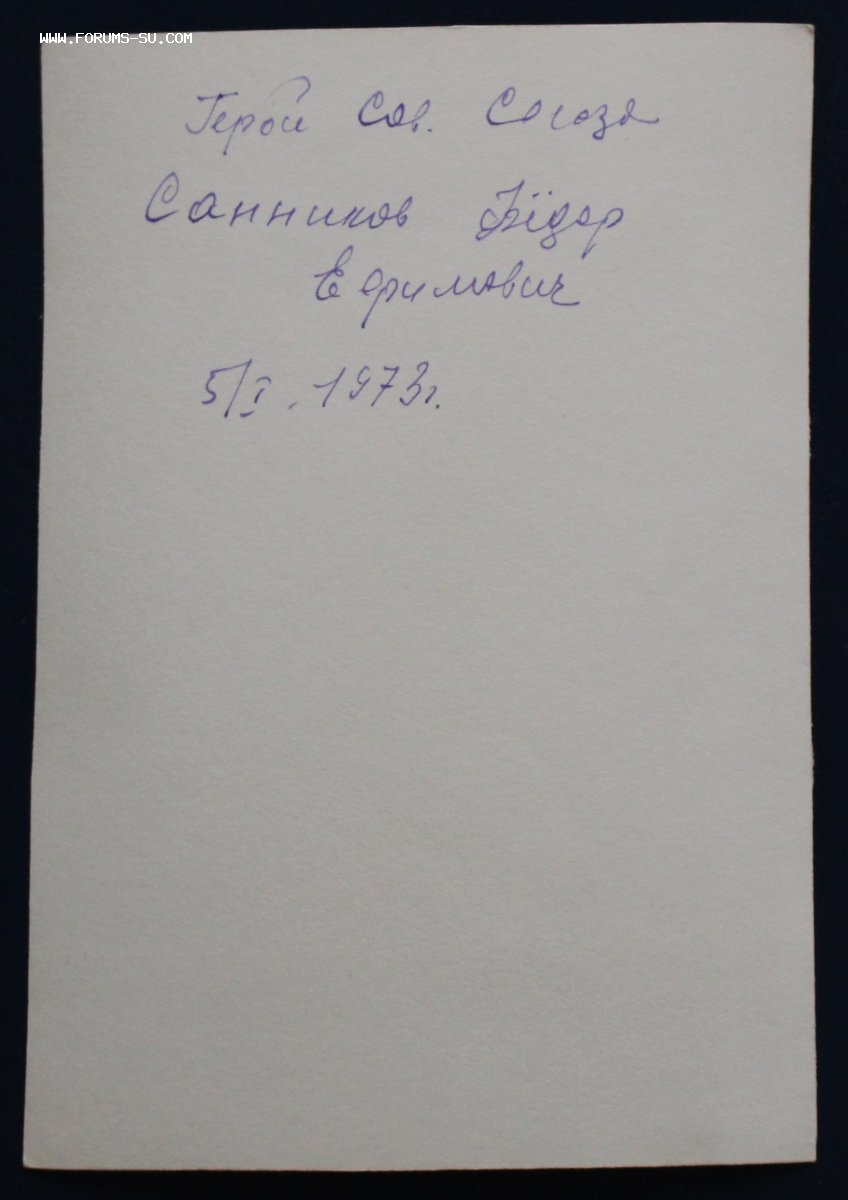 WWW.FORUMS-SU.COM
Герой Сов. Союза
Санников Фёдор
Ефимович
5/I. 1973г.